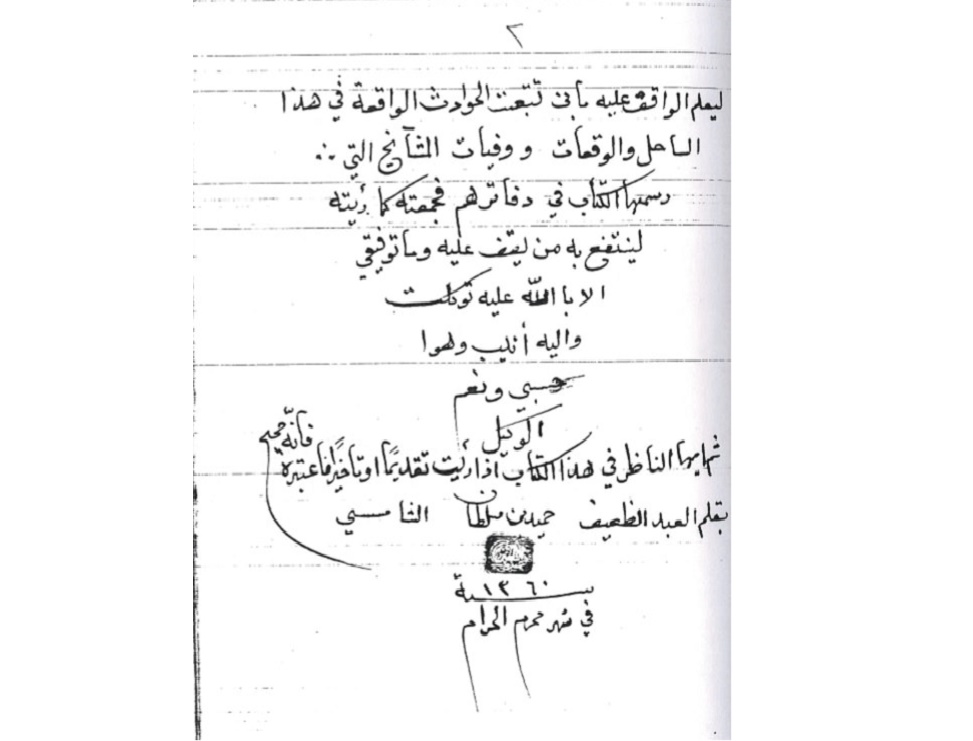 ٢
ليعلم الواقف عليه بأني تتبعت الحوادث الواقعة في هذا
الساحل والوقعات ووفيات المشآئخ التي
رسمتها الكتاب في دفاترهم فجمعته كما رئيته
لينتفع به من يقف عليه وما توفيقي
الا باالله عليه توكلت
واليه أنيب وهوا
حسبي ونعم
الوكيل
ثم ايها الناظر في هذا الكتاب اذا رأيت تقديمًا او تاخيرًا فاعتبره
فانّه صحيح
بقلم العبد الظعيف حميد بن سلطان الشامسي
سنة ١٣٦٠
في شهر محرم الحرام